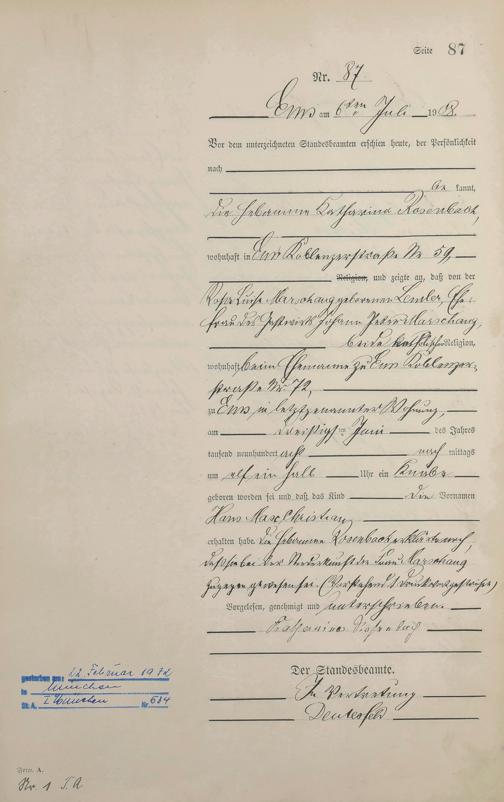 Seite 87
Nr. 87
Ems am 6ten Juli 1908.
Vor dem unterzeichneten Standesbeamten erschien heute, der Persönlichkeit
nach
be kannt,
die Hebamme Katharina Rosenbach,
wohnhaft in Ems Koblenzerstraße Nr 59,
Religion, und zeigte an, daß von der
Luise Marschang geborenen Ehe-
frau des Gastwirts Johann Peter Marschang,
beide katholischer Religion,
wohnhaft beim Ehemanne zu Ems Koblenzer-
straße Nr. 72,
zu Ems in letztgenannter Wohnung,
am dreißigsten Juni des Jahres
tausend neunhundert acht nach mittags
um elf ein halb Uhr ein Knabe
geboren worden sei und daß das Kind die Vornamen
Hans Max Christian
erhalten habe. Die Hebamme Rosenbach erklärte noch,
daß sie bei der Niederkunft der Frau Marschang
zugegen gewesen sei. (Vorstehend 1 Druckwort gestrichen)
Vorgelesen, genehmigt und unterschrieben.
Katharina Rosenbach
Der Standesbeamte.
In Vertretung
gestorben am: 22. Februar 1972
in München
St.A. I München Nr. 534
Form. A.
Nr. 1 T. A